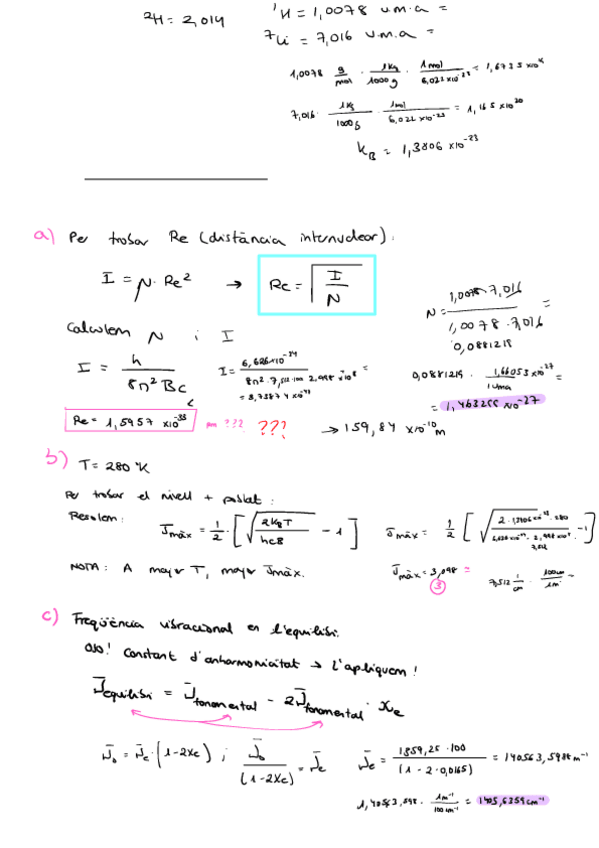 ²H = 2,014
¹H = 1,0078 u.m.a =
⁷Li = 7,016 u.m.a =
1,0078 g/mol · 1Kg/1000g · 1mol/6,022×10⁻²³ = 1,6735×10
7,016 · 1Kg/1000g · 1mol/6,022×10⁻²³ = 1,165×10²⁰
k_B = 1,3806×10⁻²³
a) Per trobar Re (distància internuclear):
I = N · Re² → Re = √(I/N)
N = 1,0078·7,016 / 1,0078·7,016 =
0,0881219
Calculem N i I
I = h / 8π²Bc
I = 6,626×10⁻³⁴ / 8π²·7,512·100·2,998×10⁸ =
= 3,7387
0,0881219 · 1,66053×10⁻²⁷ / 1uma =
= 1,463255×10⁻²⁷
Re = 1,5957×10⁻³³ ??? ???
→ 159,84×10⁻¹⁰ m
b) T = 280 °K
Per trobar el nivell + poblat:
Resolem: Jmàx = 1/2 · [√(2k_BT / hcB) - 1]
Jmàx = 1/2 [√(2·1,3806×10⁻²³·280 / 6,626×10⁻³⁴·2,998×10⁸·7,512) - 1]
NOTA: A major T, major Jmàx.
Jmàx = 3,098 =
3
7,512 1/cm · 100cm/1m =
c) Freqüència vibracional en l'equilibri.
OJO! Constant d'anharmonicitat → l'apliquem!
ν̄equilibri = ν̄fonamental - 2ν̄fonamental · Xe
ν̄₀ = ν̄e · (1-2Xe) ; ν̄₀ / (1-2Xe) = ν̄e
ν̄e = 1359,25·100 / (1-2·0,0165) = 140563,598 m⁻¹
1,40563,598 · 1m⁻¹/100cm⁻¹ = 1405,6359cm⁻¹